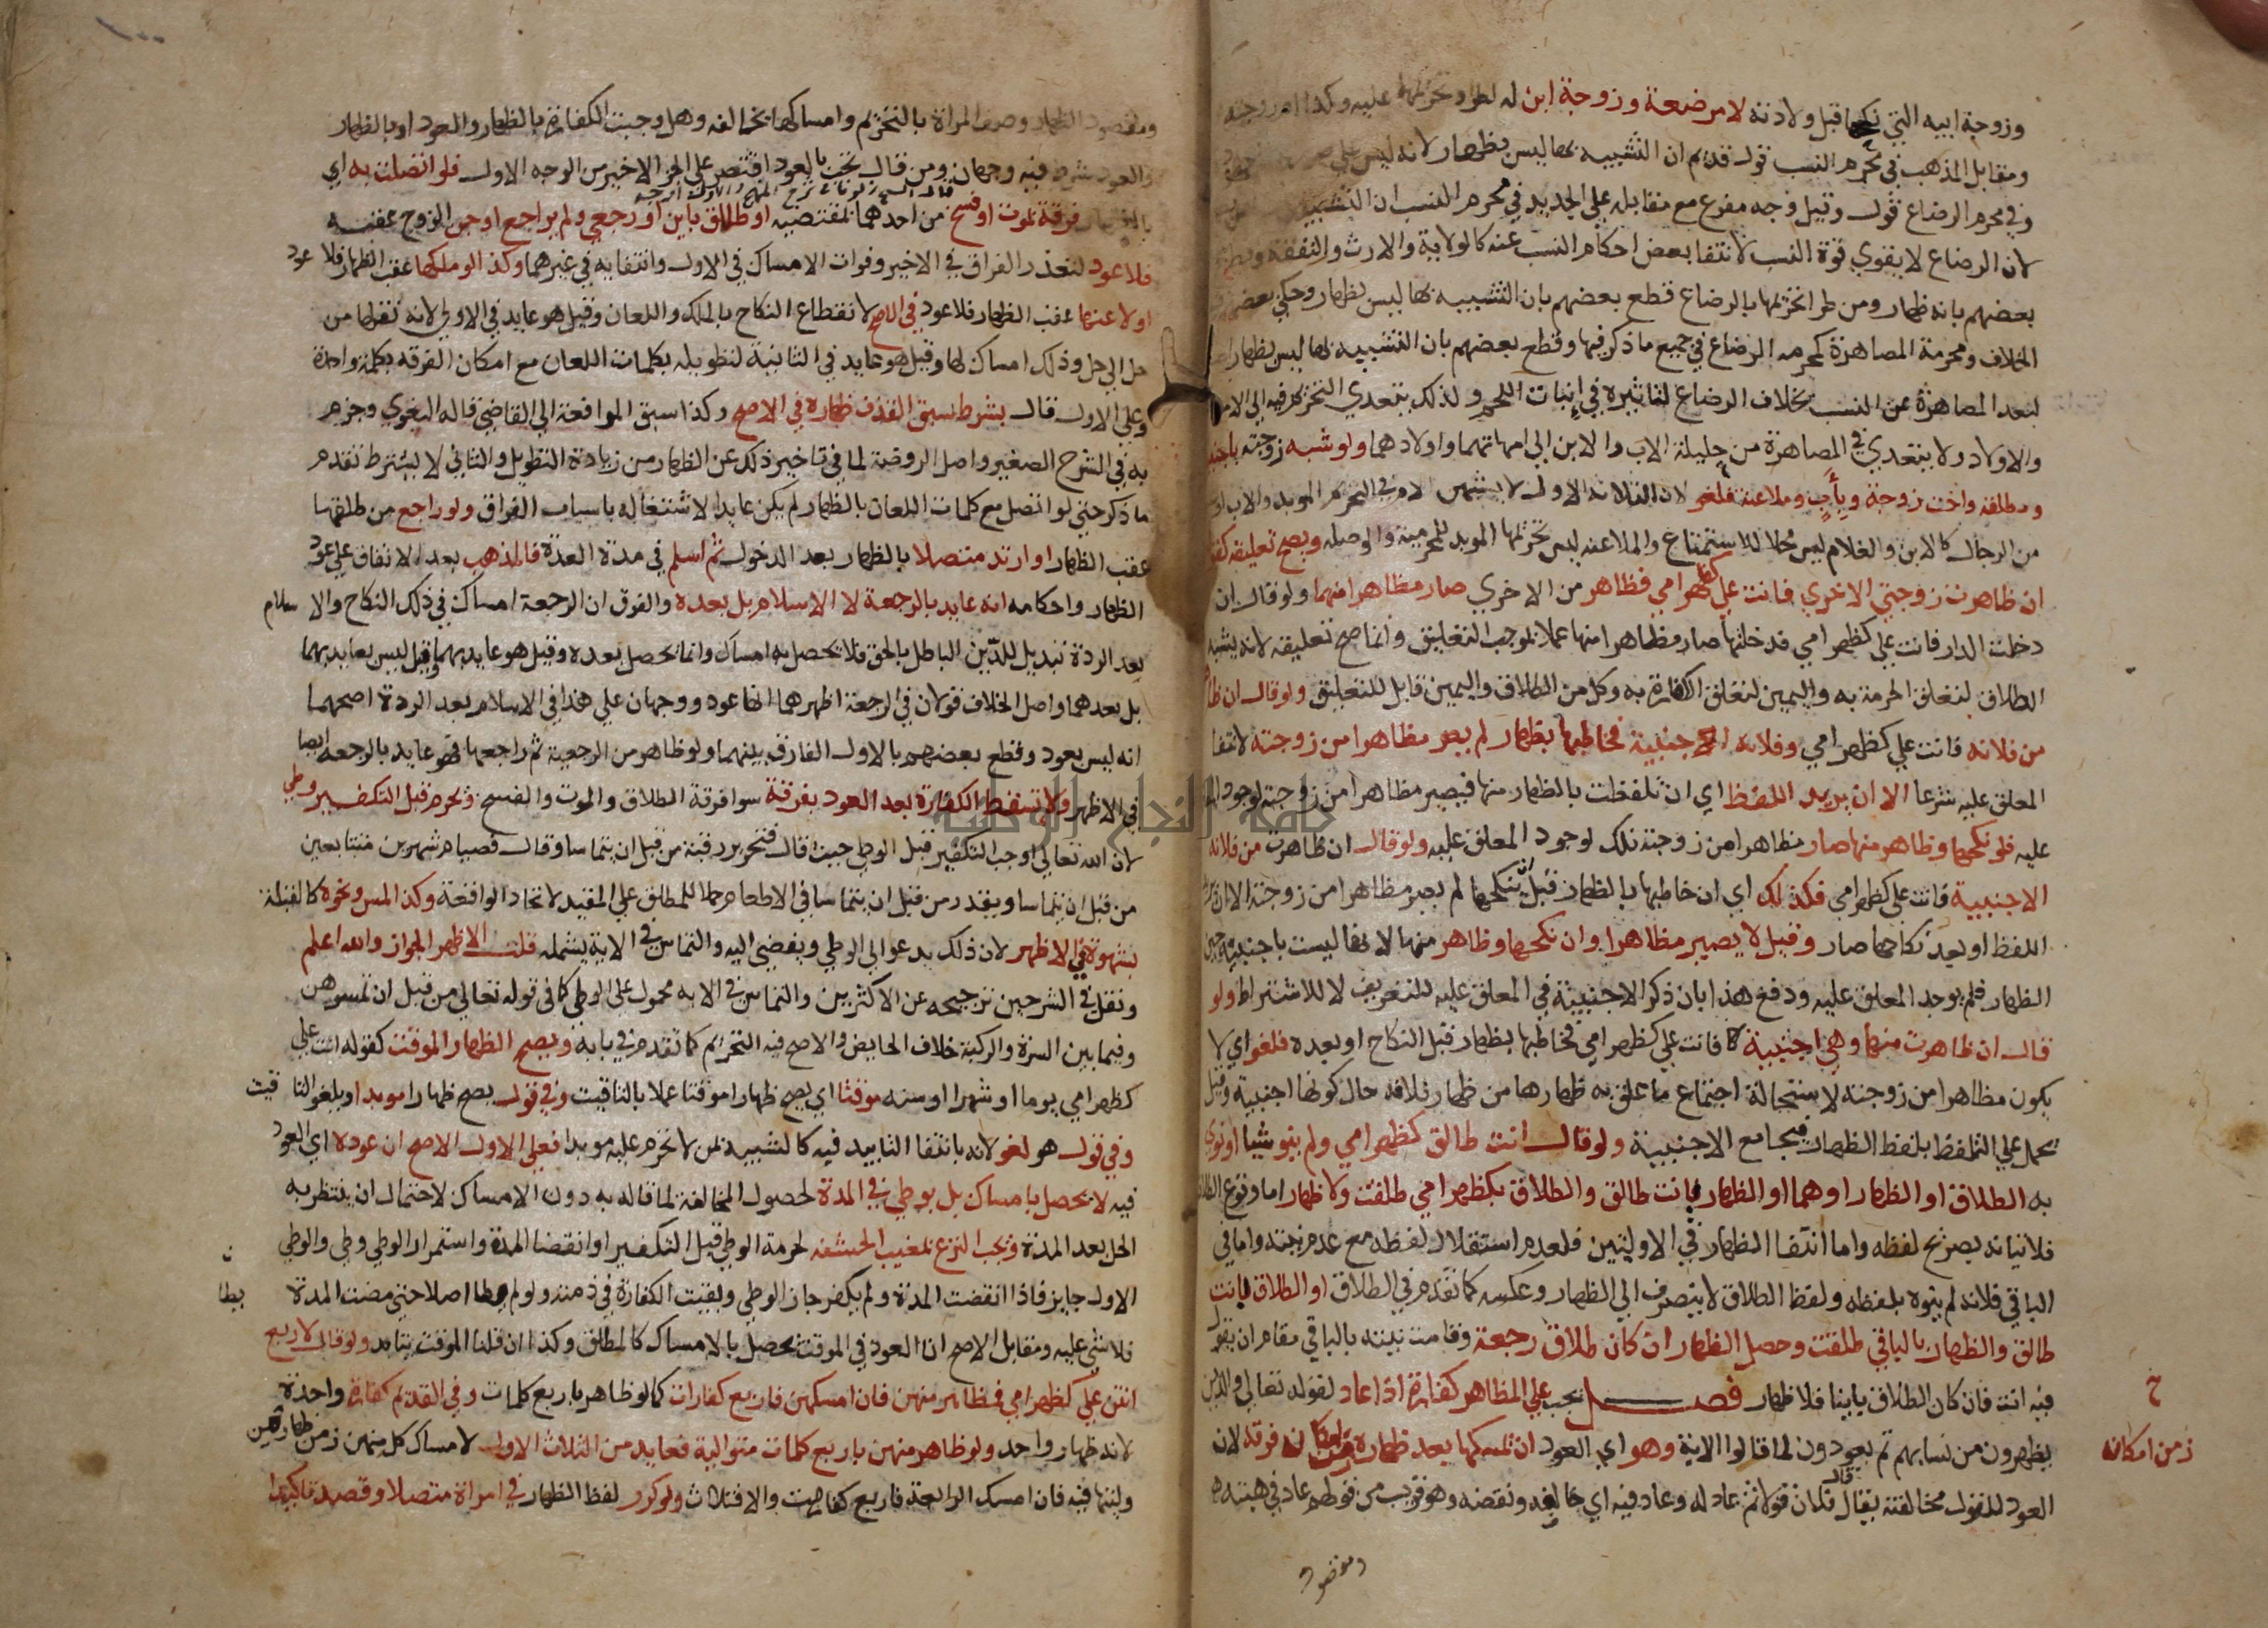 وزوجة ابيه التي نكحها قبل ولادته لا مرضعة وزوجة ابن له لطرو تحريمها عليه وكذا ام زوجته
ومقابل المذهب في محرم النسب قول قديم ان التشبيه بها ليس بظهار لانه ليس علي
وفي محرم الرضاع قول وقيل وجه مفرع مع مقابله علي الجديد في محرم النسب ان التشبيه
لان الرضاع لا يقوي قوة النسب لانتفا بعض احكام النسب عنه كالولاية والارث والنفقة
بعضهم بانه ظهار ومن طرا تحريمها بالرضاع قطع بعضهم بان التشبيه بها ليس بظهار وحكي بعضهم
الخلاف ومحرمة المصاهرة كمحرمه الرضاع في جميع ما ذكر فيها وقطع بعضهم بان التشبيه بها ليس بظهار
لبعد المصاهرة عن النسب بخلاف الرضاع لتاثيره في انبات اللحم ولذلك يتعدي التحريم فيه الي
والاولاد ولا يتعدي في المصاهرة من حليلة الاب والابن الي امهاتهما واولادهما ولو شبه زوجته
ومطلقة واخت زوجة وباب وملاعنة فلغو لان الثلاثة الاول لا يشبهن الام في التحريم الموبد والاب
من الرجال كالابن والغلام ليس محلا للاستمتاع والملاعنه ليس تحريمها الموبد للمحرمية والوصله ويصح تعليقه
ان ظاهرت زوجتي الاخري فانت علي كظهر امي فظاهر من الاخري صار مظاهرا منهما ولو قال ان
دخلت الدار فانت علي كظهر امي فدخلتها صار مظاهرا منها عملا بموجب التعليق وانما صح تعليقه لانه يشبه
الطلاق لتعلق الحرمة به واليمين لتعلق الكفارة به وكل من الطلاق واليمين قابل للتعليق ولو قال ان
من فلانه فانت علي كظهر امي وفلانه اجنبية فخاطبها بظهار لم يصر مظاهرا من زوجته لانتفا
المعلق عليه شرعا الا ان يريد اللفظ اي ان تلفظت بالظهار منها فيصير مظاهرا من زوجته لوجود
عليه فلو نكحها وظاهر منها صار مظاهرا من زوجته تلك لوجود المعلق عليه ولو قال ان ظاهرت من فلانه
الاجنبية فانت علي كظهر امي فكذلك اي ان خاطبها بالظهار قبل ان ينكحها لم يصر مظاهرا من زوجته الا ان
اللفظ او بعد نكاحها صار وقيل لا يصير مظاهرا وان نكحها وظاهر منها لانها ليست باجنبية حين
الظهار فلم يوجد المعلق عليه ودفع هذا بان ذكر الاجنبية في المعلق عليه للتعريف لا للاشتراط ولو
قال ان ظاهرت منها وهي اجنبية فانت علي كظهر امي فخاطبها بظهار قبل النكاح او بعده فلغو اي لا
يكون مظاهرا من زوجته لاستحالة اجتماع ما علق به ظهارها من ظهار فلانه حال كونها اجنبية وقيل
يحمل علي التلفظ بلفظ الظهار فيجامع الاجنبية ولو قال انت طالق كظهر امي ولم ينو شيا او نوي
به الطلاق او الظهار او هما او الظهار بانت طالق والطلاق بكظهر امي طلقت ولا ظهار اما وقوع
فلاتيانه بصريح لفظه واما انتفا الظهار في الاوليين فلعدم استقلال لفظه مع عدم نيته واما في
الباقي فلانه لم ينوه بلفظه ولفظ الطلاق لا ينصرف الي الظهار وعكسه كما تقدم في الطلاق او الطلاق بانت
طالق والظهار بالباقي طلقت وحصل الظهار ان كان طلاق رجعة وقامت نيته بالباقي مقام ان يقول
فيه انت فان كان الطلاق باينا فلا ظهار فصل يجب علي المظاهر كفارة اذا عاد لقوله تعالي والذين
يظهرون من نسايهم ثم يعودون لما قالوا الاية وهو اي العود ان يمسكها بعد ظهاره فرقة لان
زمن امكان
العود للقول مخالفته يقال قال فلان قولا ثم عاد له وعاد فيه اي خالفه ونقضه وهو قريب من قولهم عاد في هبته
ومقصود
ومقصود الظهار وصف المراة بالتحريم وامساكها يخالفه وهل وجبت الكفارة بالظهار والعود او بالظهار
والعود شرط فيه وجهان ومن قال تجب بالعود اقتصر علي الجز الاخير من الوجه الاول فلو اتصلت به اي
فرقة بموت او فسخ من احدهما بمقتضيه او طلاق باين او رجعي ولم يراجع او جن الزوج عقبه
فلا عود لتعذر الفراق في الاخير وفوات الامساك في الاول وانتفايه في غيرهما وكذا لو ملكها عقب الظهار فلا عود
او لاعنها عقب الظهار فلا عود في الاصح لانقطاع النكاح بالملك واللعان وقيل هو عايد في الاولي لانه نقلها من
حل الي حل وذلك امساك لها وقيل هو عايد في الثانية لتطويله بكلمات اللعان مع امكان الفرقه بكلمة واحدة
وعلي الاول قال بشرط سبق القذف ظهاره في الاصح وكذا سبق المرافعة الي القاضي قاله البغوي وجزم
به في الشرح الصغير واصل الروضة لما في تاخير ذلك عن الظهار من زيادة التطويل والثاني لا يشترط تقدم
ما ذكر حتي لو اتصل مع كلمات اللعان بالظهار لم يكن عايدا لاشتغاله باسباب الفراق ولو راجع من طلقها
عقب الظهار او ارتد متصلا بالظهار بعد الدخول ثم اسلم في مدة العدة فالمذهب بعد الاتفاق علي عود
الظهار واحكامه انه عايد بالرجعة لا الاسلام بل بعده والفرق ان الرجعة امساك في ذلك النكاح والاسلام
بعد الردة تبديل للدين الباطل بالحق فلا يحصل به امساك وانما يحصل بعده وقيل هو عايد بهما وقيل ليس بعايد بهما
بل بعدهما واصل الخلاف قولان في الرجعة اظهرهما انها عود ووجهان علي هذا في الاسلام بعد الردة اصحهما
انه ليس بعود وقطع بعضهم بالاول الفارق بينهما ولو ظاهر من الرجعية ثم راجعها فهو عايد بالرجعه ايضا
في الاظهر ولا تسقط الكفارة بعد العود بفرقة سوا فرقة الطلاق والموت والفسخ ويحرم قبل التكفير وطي
لان الله تعالي اوجب التكفير قبل الوطي حيث قال فتحرير رقبة من قبل ان يتماسا وقال فصيام شهرين متتابعين
من قبل ان يتماسا ويقدر من قبل ان يتماسا في الاطعام حملا للمطلق علي المقيد لاتحاد الواقعة وكذا المس ونحوه كالقبلة
بشهوة في الاظهر لان ذلك يدعو الي الوطي ويفضي اليه والتماس في الاية يشمله قلت الاظهر الجواز والله اعلم
ونقل في الشرحين ترجيحه عن الاكثرين والتماس في الايه محمول علي الوطي كما في قوله تعالي من قبل ان تمسوهن
وفيما بين السرة والركبة خلاف الحايض والاصح فيه التحريم كما تقدم في بابه ويصح الظهار الموقت كقوله انت علي
كظهر امي يوما او شهرا او سنه موقتا اي يصح ظهارا موقتا عملا بالتاقيت وفي قول يصح ظهارا موبدا ويلغو التاقيت
وفي قول هو لغو لانه بانتفا التابيد فيه كالتشبيه بمن لا تحرم عليه موبدا فعلي الاول الاصح ان عوده اي العود
فيه لا يحصل بامساك بل بوطي في المدة لحصول المخالفة لما قاله به دون الامساك لاحتمال ان ينتظر به
الحل بعد المدة ويجب النزع بمغيب الحشفه لحرمة الوطي قبل التكفير او انقضا المدة واستمرار الوطي وطي والوطي
الاول جايز فاذا انقضت المدة ولم يكفر جاز الوطي وبقيت الكفارة في ذمته ولو لم يطا اصلا حتي مضت المدة
فلا شي عليه ومقابل الاصح ان العود في الموقت يحصل بالامساك كالمطلق وكذا ان قلنا الموقت يتابد ولو قال لاربع
انتن علي كظهر امي فمظاهر منهن فان امسكهن فاربع كفارات كما لو ظاهر باربع كلمات وفي القديم كفارة واحدة
لانه ظهار واحد ولو ظاهر منهن باربع كلمات متوالية فعايد من الثلاث الاول لامساك كل منهن زمن ظهار من
وليتها فيه فان امسك الرابعة فاربع كفارات والا فثلاث ولو كرر لفظ الظهار في امراة متصلا وقصد تاكيدا
جامعة النجاح الوطنية